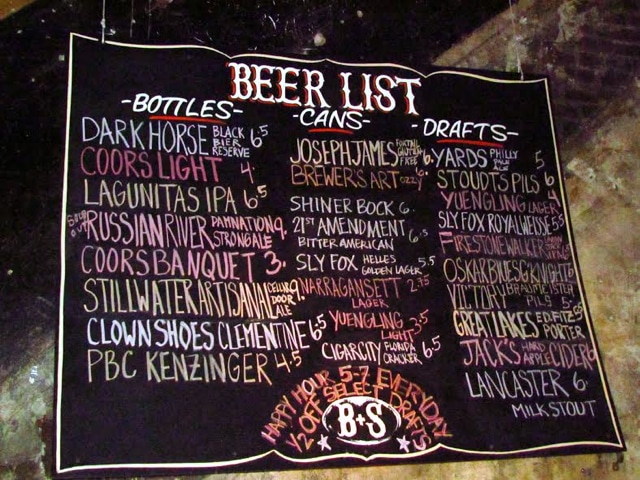 BEER LIST
-BOTTLES-
DARK HORSE BLACK BIER RESERVE 6.5
COORS LIGHT 4.
LAGUNITAS IPA 6.5
RUSSIAN RIVER DAMNATION STRONG ALE 9.
COORS BANQUET 3.
STILLWATER ARTISANAL CELLAR DOOR ALE 9.
CLOWN SHOES CLEMENTINE 6.5
PBC KENZINGER 4.5
-CANS-
JOSEPH JAMES FOXTAIL GLUTEN FREE 6.
BREWER'S ART OZZY 6.
SHINER BOCK 6.
21ST AMENDMENT BITTER AMERICAN 6.5
SLY FOX HELLES GOLDEN LAGER 5.5
NARRAGANSETT LAGER 2.75
YUENGLING LIGHT 3.5
CIGAR CITY FLORIDA CRACKER 6.5
-DRAFTS-
YARDS PHILLY PALE ALE 5
STOUDTS PILS 6
YUENGLING LAGER 4
SLY FOX ROYAL WEISSE 5.5
FIRESTONE WALKER
OSKAR BLUES G'KNIGHT 6
VICTORY BRAUMEISTER PILS 5.
GREAT LAKES ED FITZ PORTER
JACK'S HARD APPLE CIDER 6
LANCASTER 6.
MILK STOUT
HAPPY HOUR 5-7 EVERYDAY
1/2 OFF SELECT DRAFTS
B+S